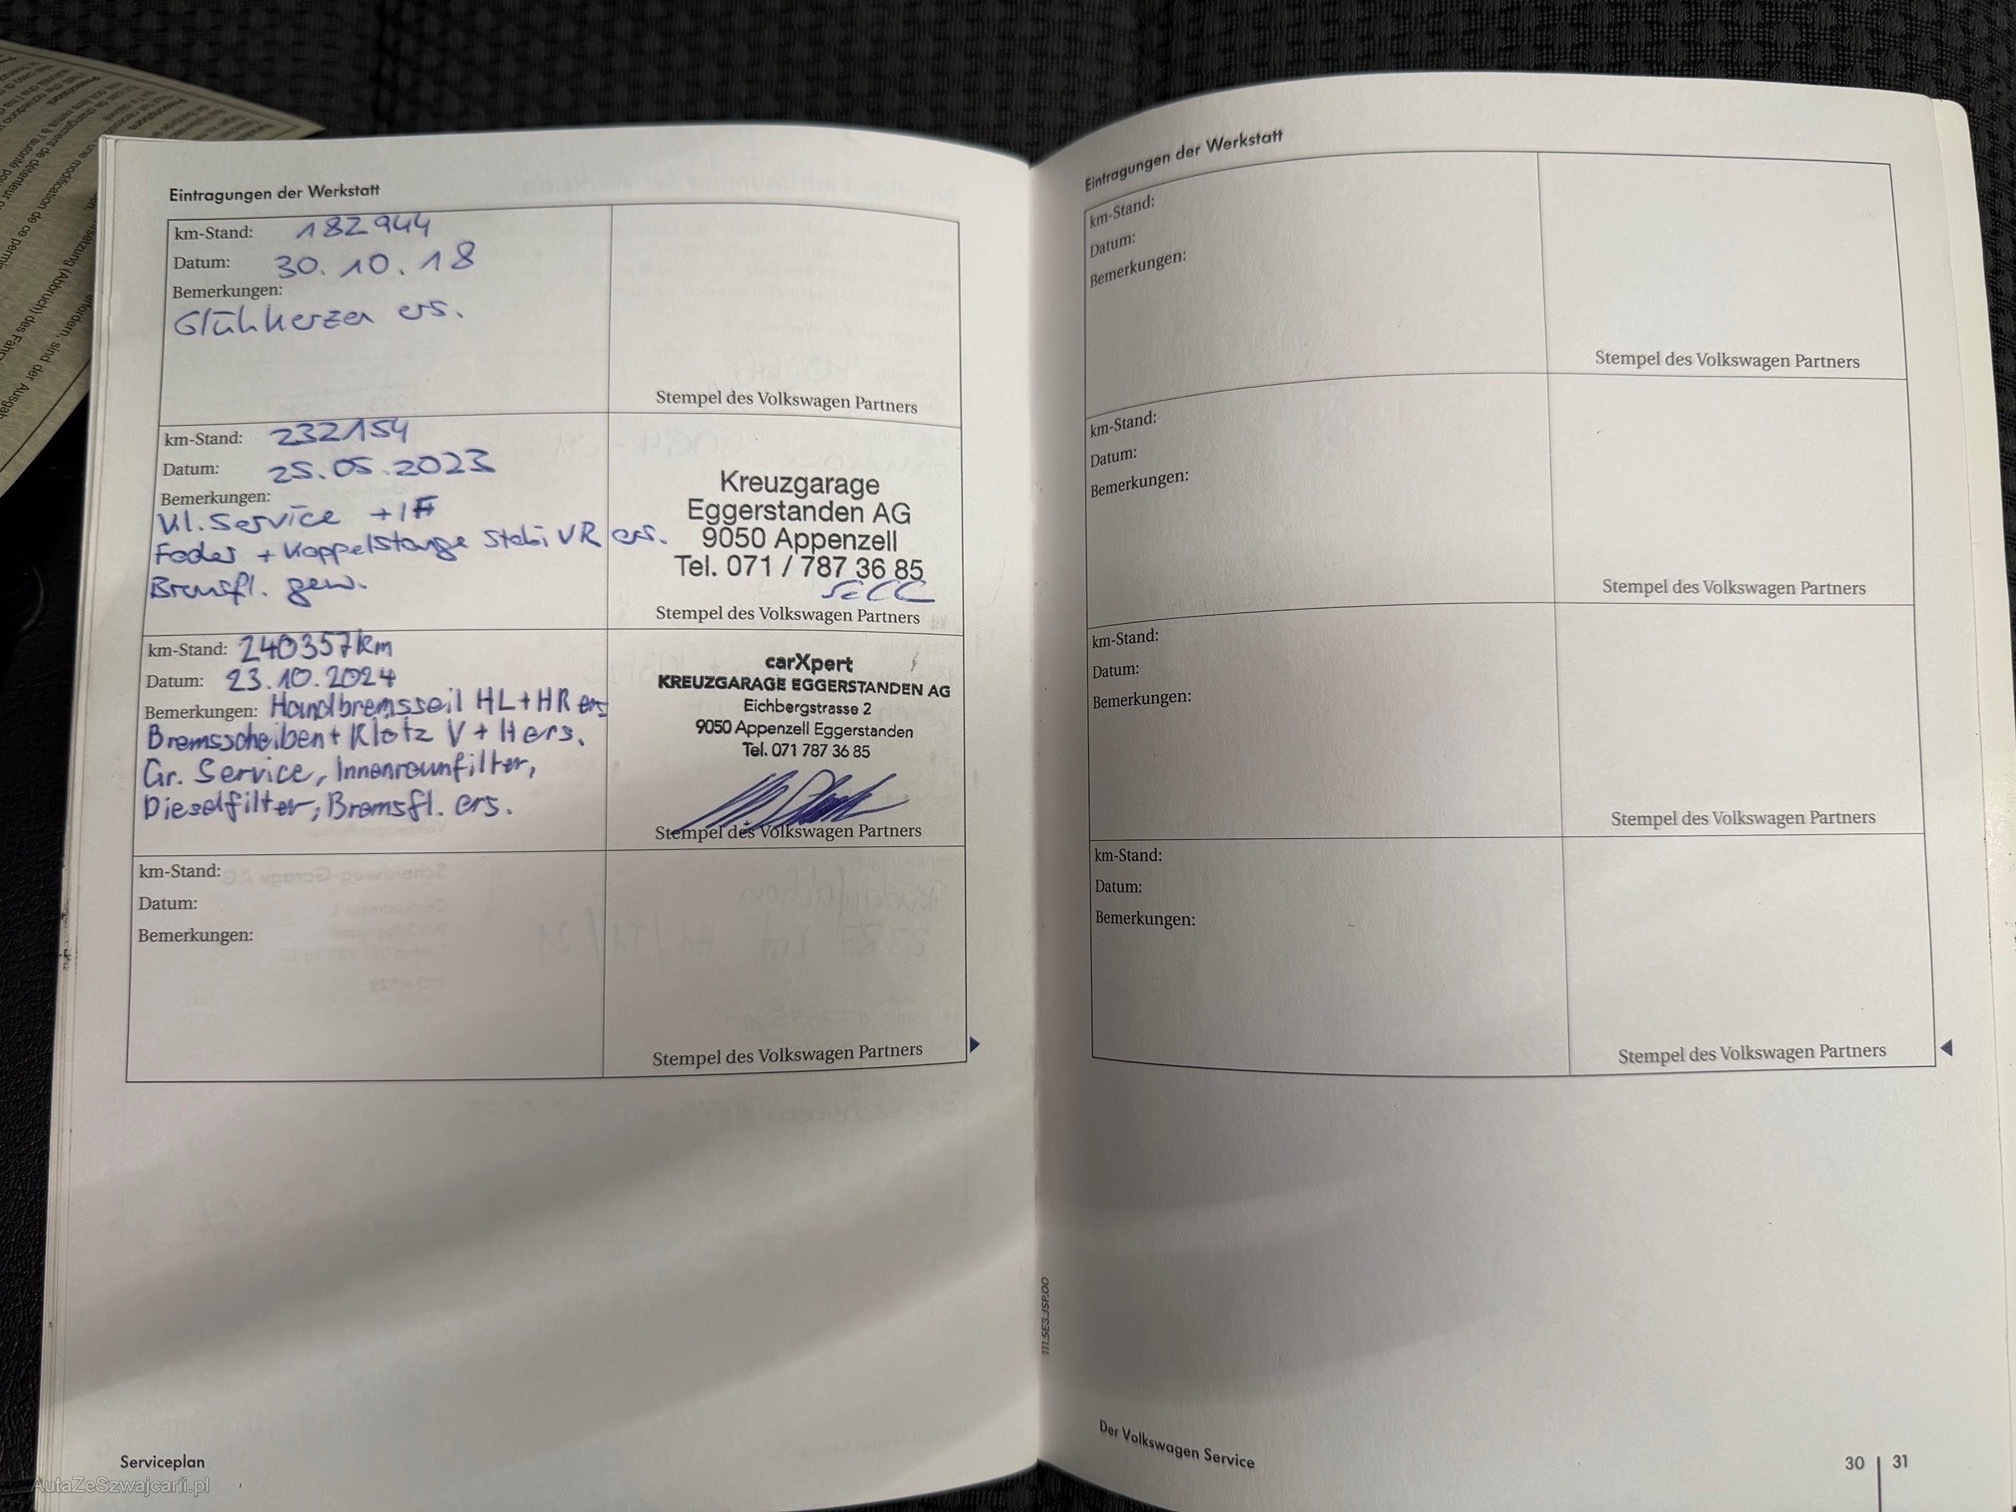 Eintragungen der Werkstatt
km-Stand: 182944
Datum: 30.10.18
Bemerkungen:
Glühkerzen ers.
Stempel des Volkswagen Partners
km-Stand: 232154
Datum: 25.05.2023
Bemerkungen:
Kl. Service
Feder + Koppelstange Stabi VR ers.
Bremsfl. gew.
Kreuzgarage
Eggerstanden AG
9050 Appenzell
Tel. 071 / 787 36 85
Stempel des Volkswagen Partners
km-Stand: 240357km
Datum: 23.10.2024
Bemerkungen: Handbremsseil HL+HR ers
Bremsscheiben+ Klötz V + H ers.
Gr. Service, Innenraumfilter,
Dieselfilter, Bremsfl. ers.
carXpert
KREUZGARAGE EGGERSTANDEN AG
Eichbergstrasse 2
9050 Appenzell Eggerstanden
Tel. 071 787 36 85
Stempel des Volkswagen Partners
km-Stand:
Datum:
Bemerkungen:
Stempel des Volkswagen Partners
Serviceplan
AutaZeSzwajcarii.pl
Eintragungen der Werkstatt
km-Stand:
Datum:
Bemerkungen:
Stempel des Volkswagen Partners
km-Stand:
Datum:
Bemerkungen:
Stempel des Volkswagen Partners
km-Stand:
Datum:
Bemerkungen:
Stempel des Volkswagen Partners
km-Stand:
Datum:
Bemerkungen:
Stempel des Volkswagen Partners
111.5E3.JSP.00
Der Volkswagen Service
30 | 31